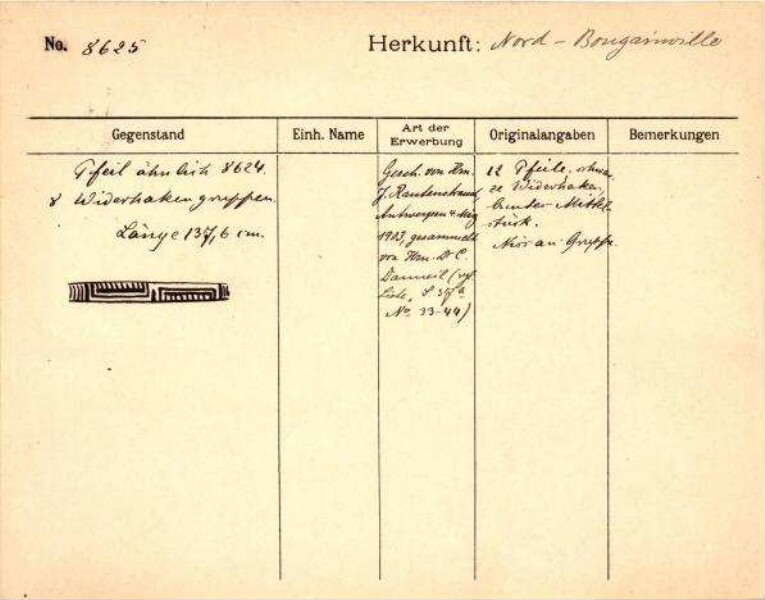 No. 8625
Herkunft: Nord-Bougainville
Gegenstand
Einh. Name
Art der
Erwerbung
Originalangaben
Bemerkungen
Pfeil ähnlich 8624.
8 Widerhakengruppen.
Länge 137,6 cm.
Gesch. von Hrn.
J. Rautenstrauch,
Antwerpen 4. Mrz
1903, gesammelt
von Hrn. Dr C.
Danneil (vgl
Liste, S. 37a
No. 33-44)
12 Pfeile, schwar
ze Widerhaken,
bunter Mittel-
stück.